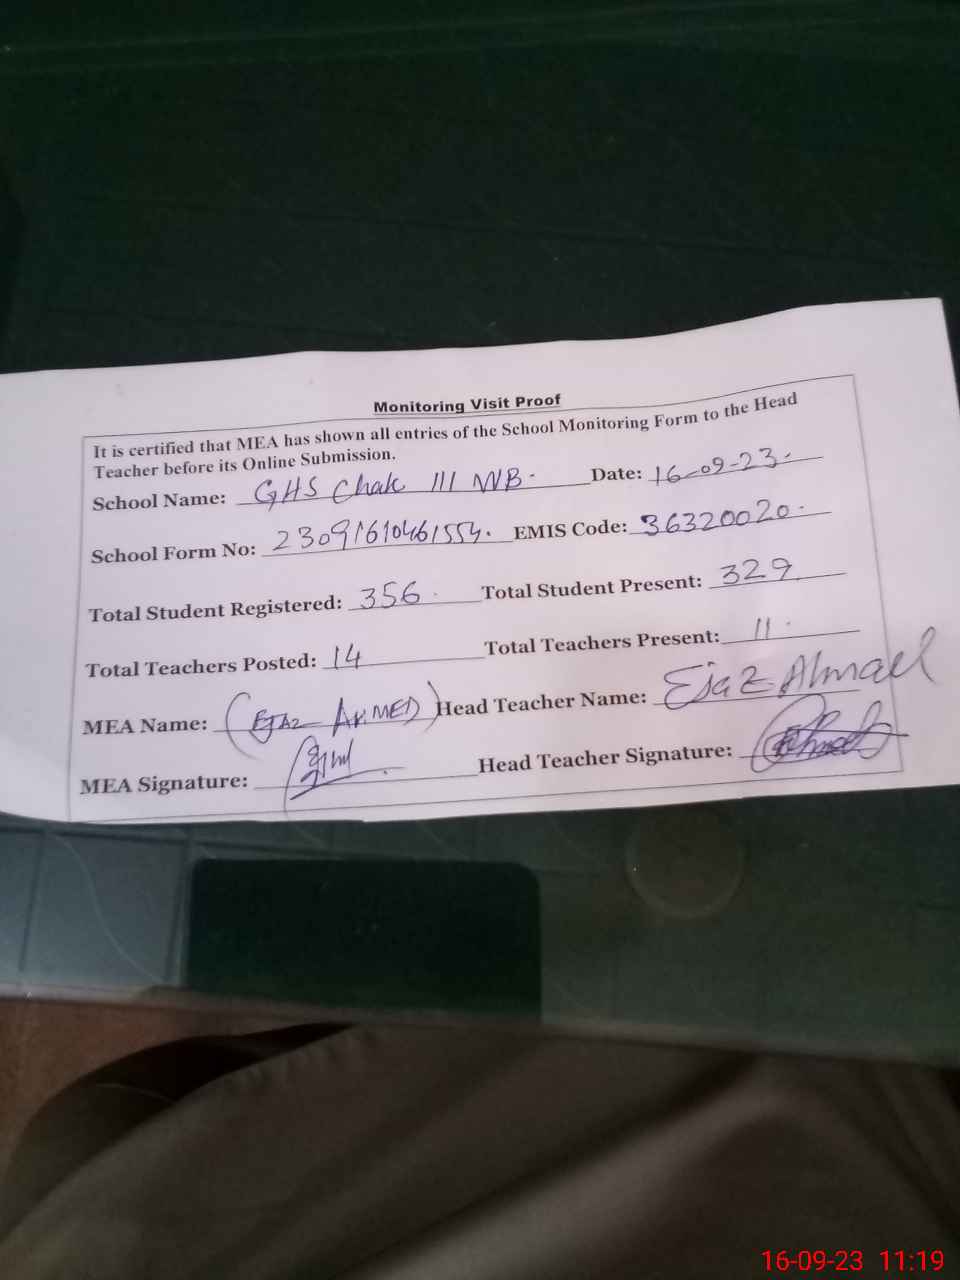 Monitoring Visit Proof
It is certified that MEA has shown all entries of the School Monitoring Form to the Head
Teacher before its Online Submission.
School Name: GHS Chak 111 WB. Date: 16-09-23.
School Form No: 23091610461554. EMIS Code: 36320020.
Total Student Registered: 356. Total Student Present: 329
Total Teachers Posted: 14 Total Teachers Present: 11.
MEA Name: (EJAZ AHMED) Head Teacher Name: Ejaz Ahmad
MEA Signature: Head Teacher Signature:
16-09-23 11:19